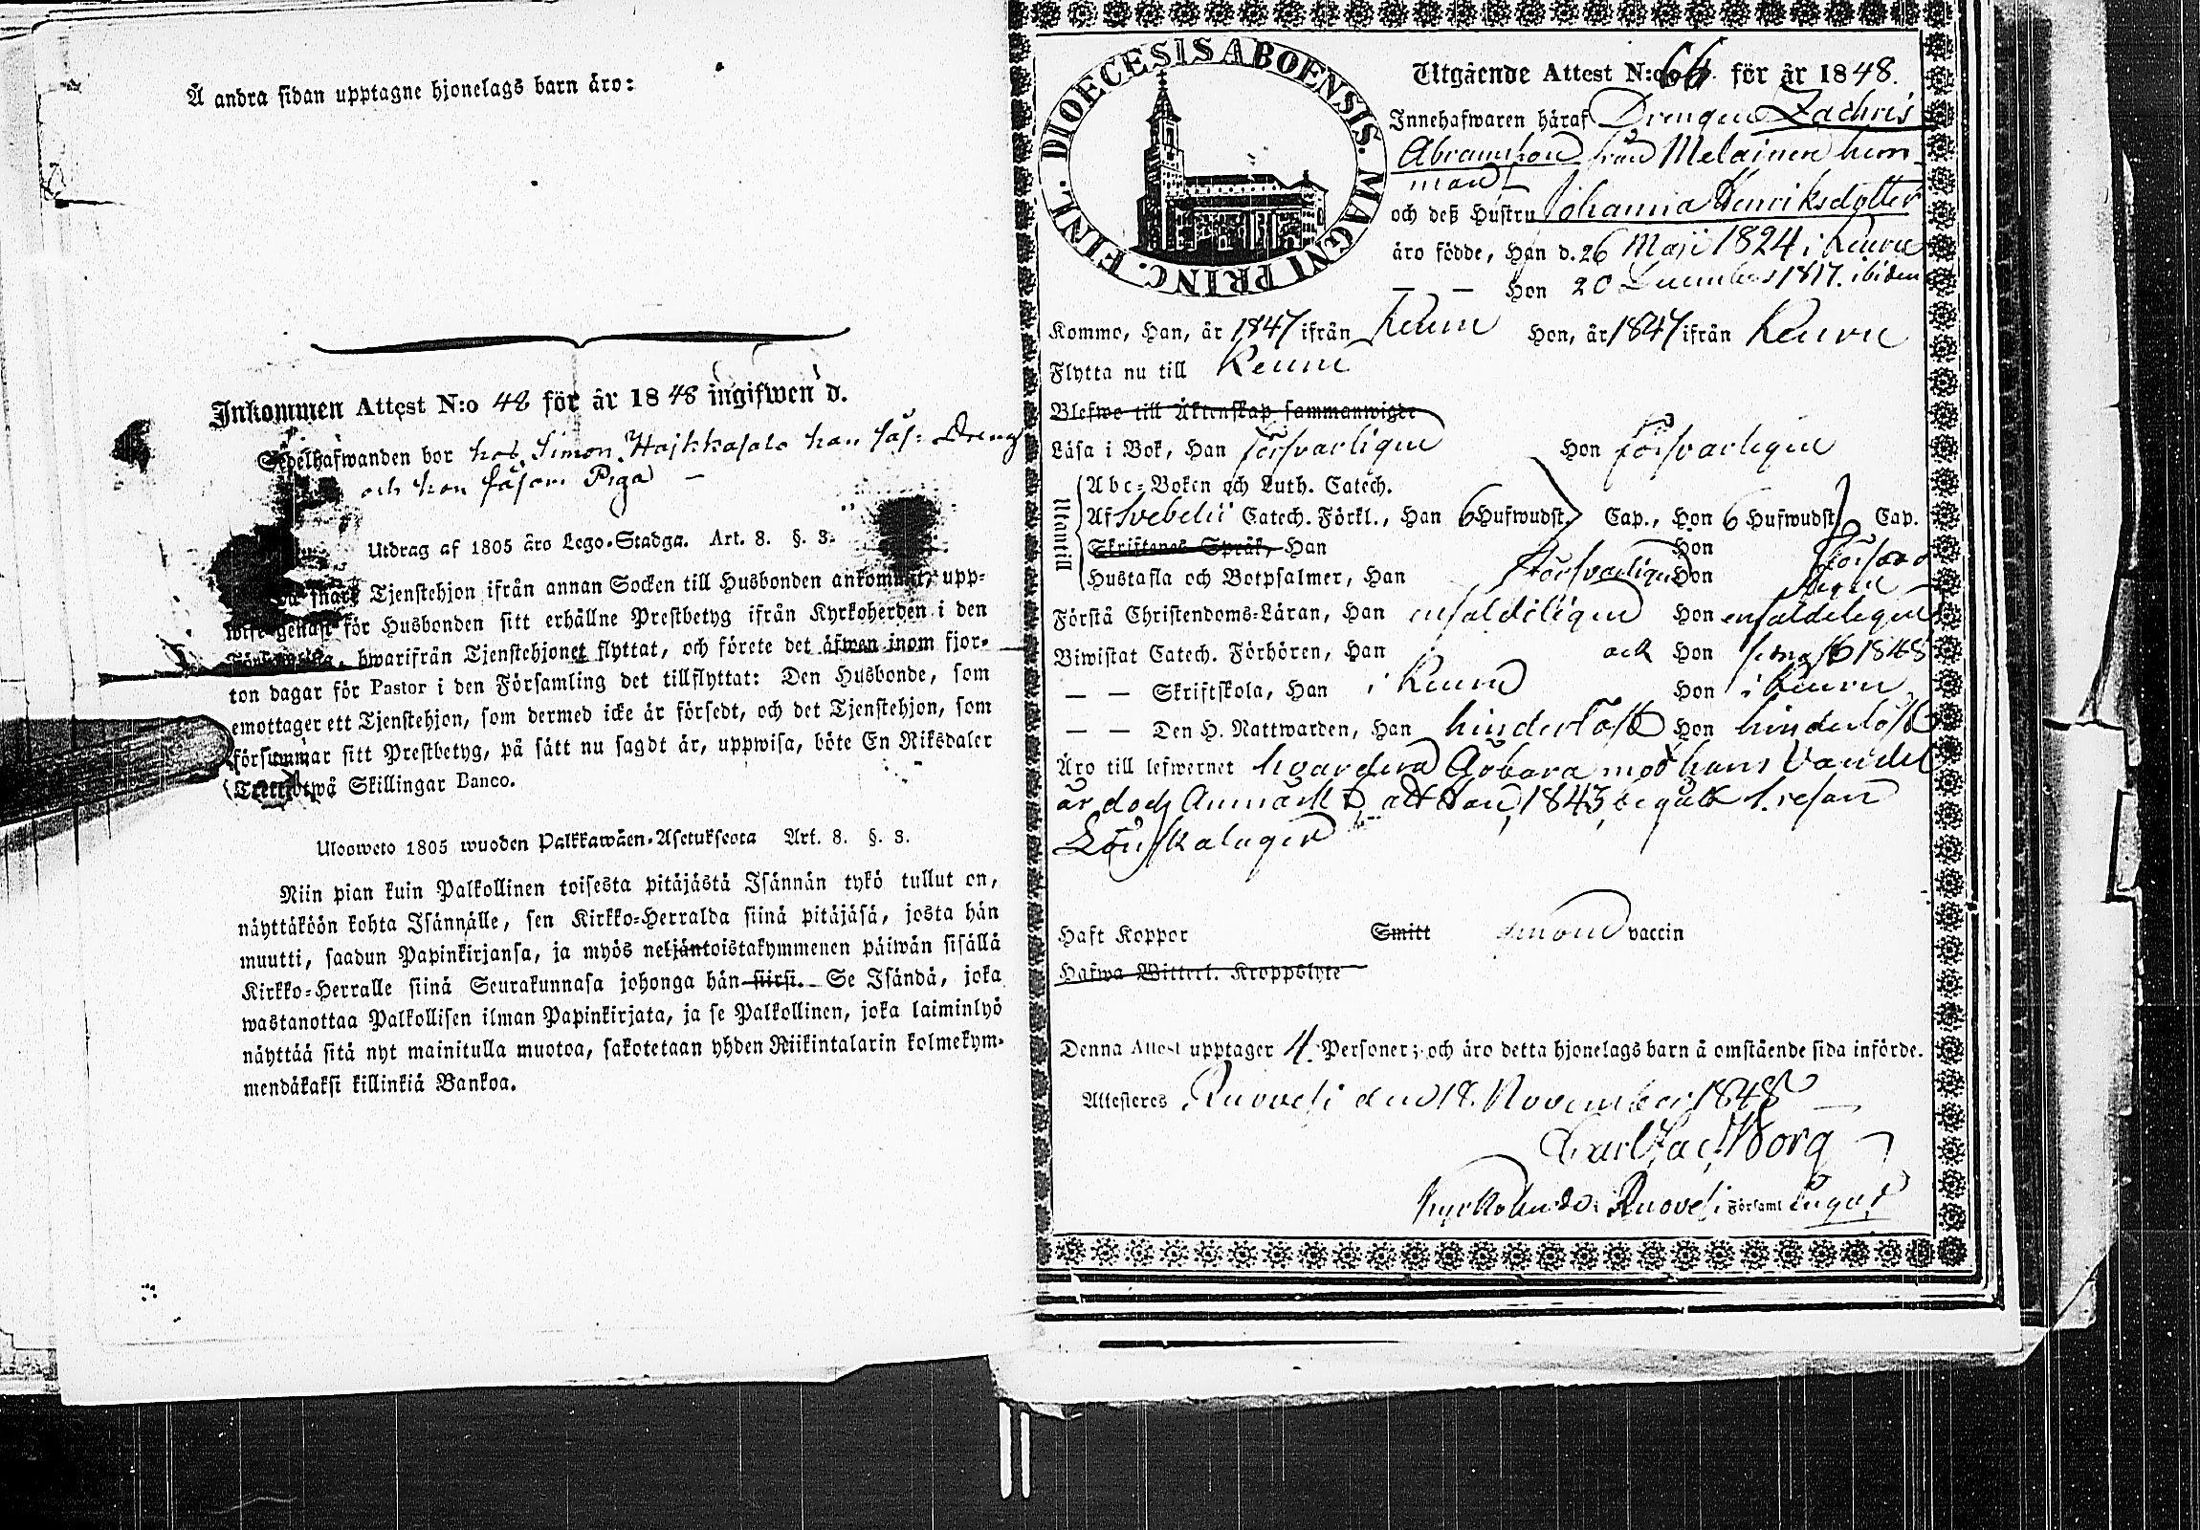 Å andra sidan upptagne hjonelags barn äro:
Inkommen Attest N:o 48 för år 1848 ingifwen d.
Sedelhafwanden bor hos Simon Hajkkasalo han såsom Dreng
och hon såsom Piga —
Utdrag af 1805 års Lego-Stadga. Art. 8. §. 3.
snart Tjenstehjon ifrån annan Socken till Husbonden ankommit, upp-
wise genast för Husbonden sitt erhållne Prestbetyg ifrån Kyrkoherden i den
Församling, hwarifrån Tjenstehjonet flyttat, och förete det äfwen inom fjor-
ton dagar för Pastor i den Församling det tillflyttat: Den Husbonde, som
emottager ett Tjenstehjon, som dermed icke är försedt, och det Tjenstehjon, som
försummar sitt Prestbetyg, på sätt nu sagdt är, uppwisa, böte En Riksdaler
Trettiotwå Skillingar Banco.
Ulosweto 1805 wuoden Palkkawäen-Asetuksesta Art. 8. §. 3.
Niin pian kuin Palkollinen toisesta pitäjästä Isännän tykö tullut on,
näyttäköön kohta Isännälle, sen Kirkko-Herralda siinä pitäjäsä, josta hän
muutti, saadun Papinkirjansa, ja myös neljäntoistakymmenen päiwän sisällä
Kirkko-Herralle siinä Seurakunnasa johonga hän siirsi. Se Isändä, joka
wastanottaa Palkollisen ilman Papinkirjata, ja se Palkollinen, joka laiminlyö
näyttää sitä nyt mainitulla muotoa, sakotetaan yhden Riikintalarin kolmekym-
mendäkaksi killinkiä Bankoa.
DIOECESIS ABOENSIS. MAGNI PRINC. FINL.
Utgående Attest N:o 66 för år 1848.
Innehafwaren häraf Drengen Zachris
Abramsson från Melainen hem
man
och deß Hustru Johanna Henriksdotter
äro födde, Han d. 26 Maji 1824 i Keuru
— — Hon 20 December 1817. ibidem
Komme, Han, år 1847 ifrån Keuru Hon, år 1847 ifrån Keuru
Flytta nu till Keuru
Blefwo till Äktenskap sammanwigde
Läsa i Bok, Han försvarligen Hon försvarligen
Utantill
Abc-Boken och Luth. Catech.
Af Svebelii Catech. Förkl., Han 6 Hufwudst. Cap., Hon 6 Hufwudst. Cap.
Skriftenes Språk, Han Hon
Hustafla och Botpsalmer, Han försvarligen Hon försvar
ligen
Förstå Christendoms-Läran, Han enfaldeligen Hon enfaldeligen
Biwistat Catech. Förhören, Han och Hon 1848
— — Skriftskola, Han i Keuru Hon i Keuru
— — Den H. Nattwarden, Han hinderlöst Hon hinderlöst
Äro till lefwernet hvardera Ärbara mot hans Vandel
är dock Anmärkt, att han 1843 begått 1. resan
Lönskaläger
Haft Koppor Smitt genom vaccin
Hafwa Witterl. Kroppslyte
Denna Attest upptager 4. Personer; och äro detta hjonelags barn å omstående sida införde.
Attesteres Ruovesi den 18. November 1848
Carl Borg
Kyrkoherde i Ruovesi Församlingar